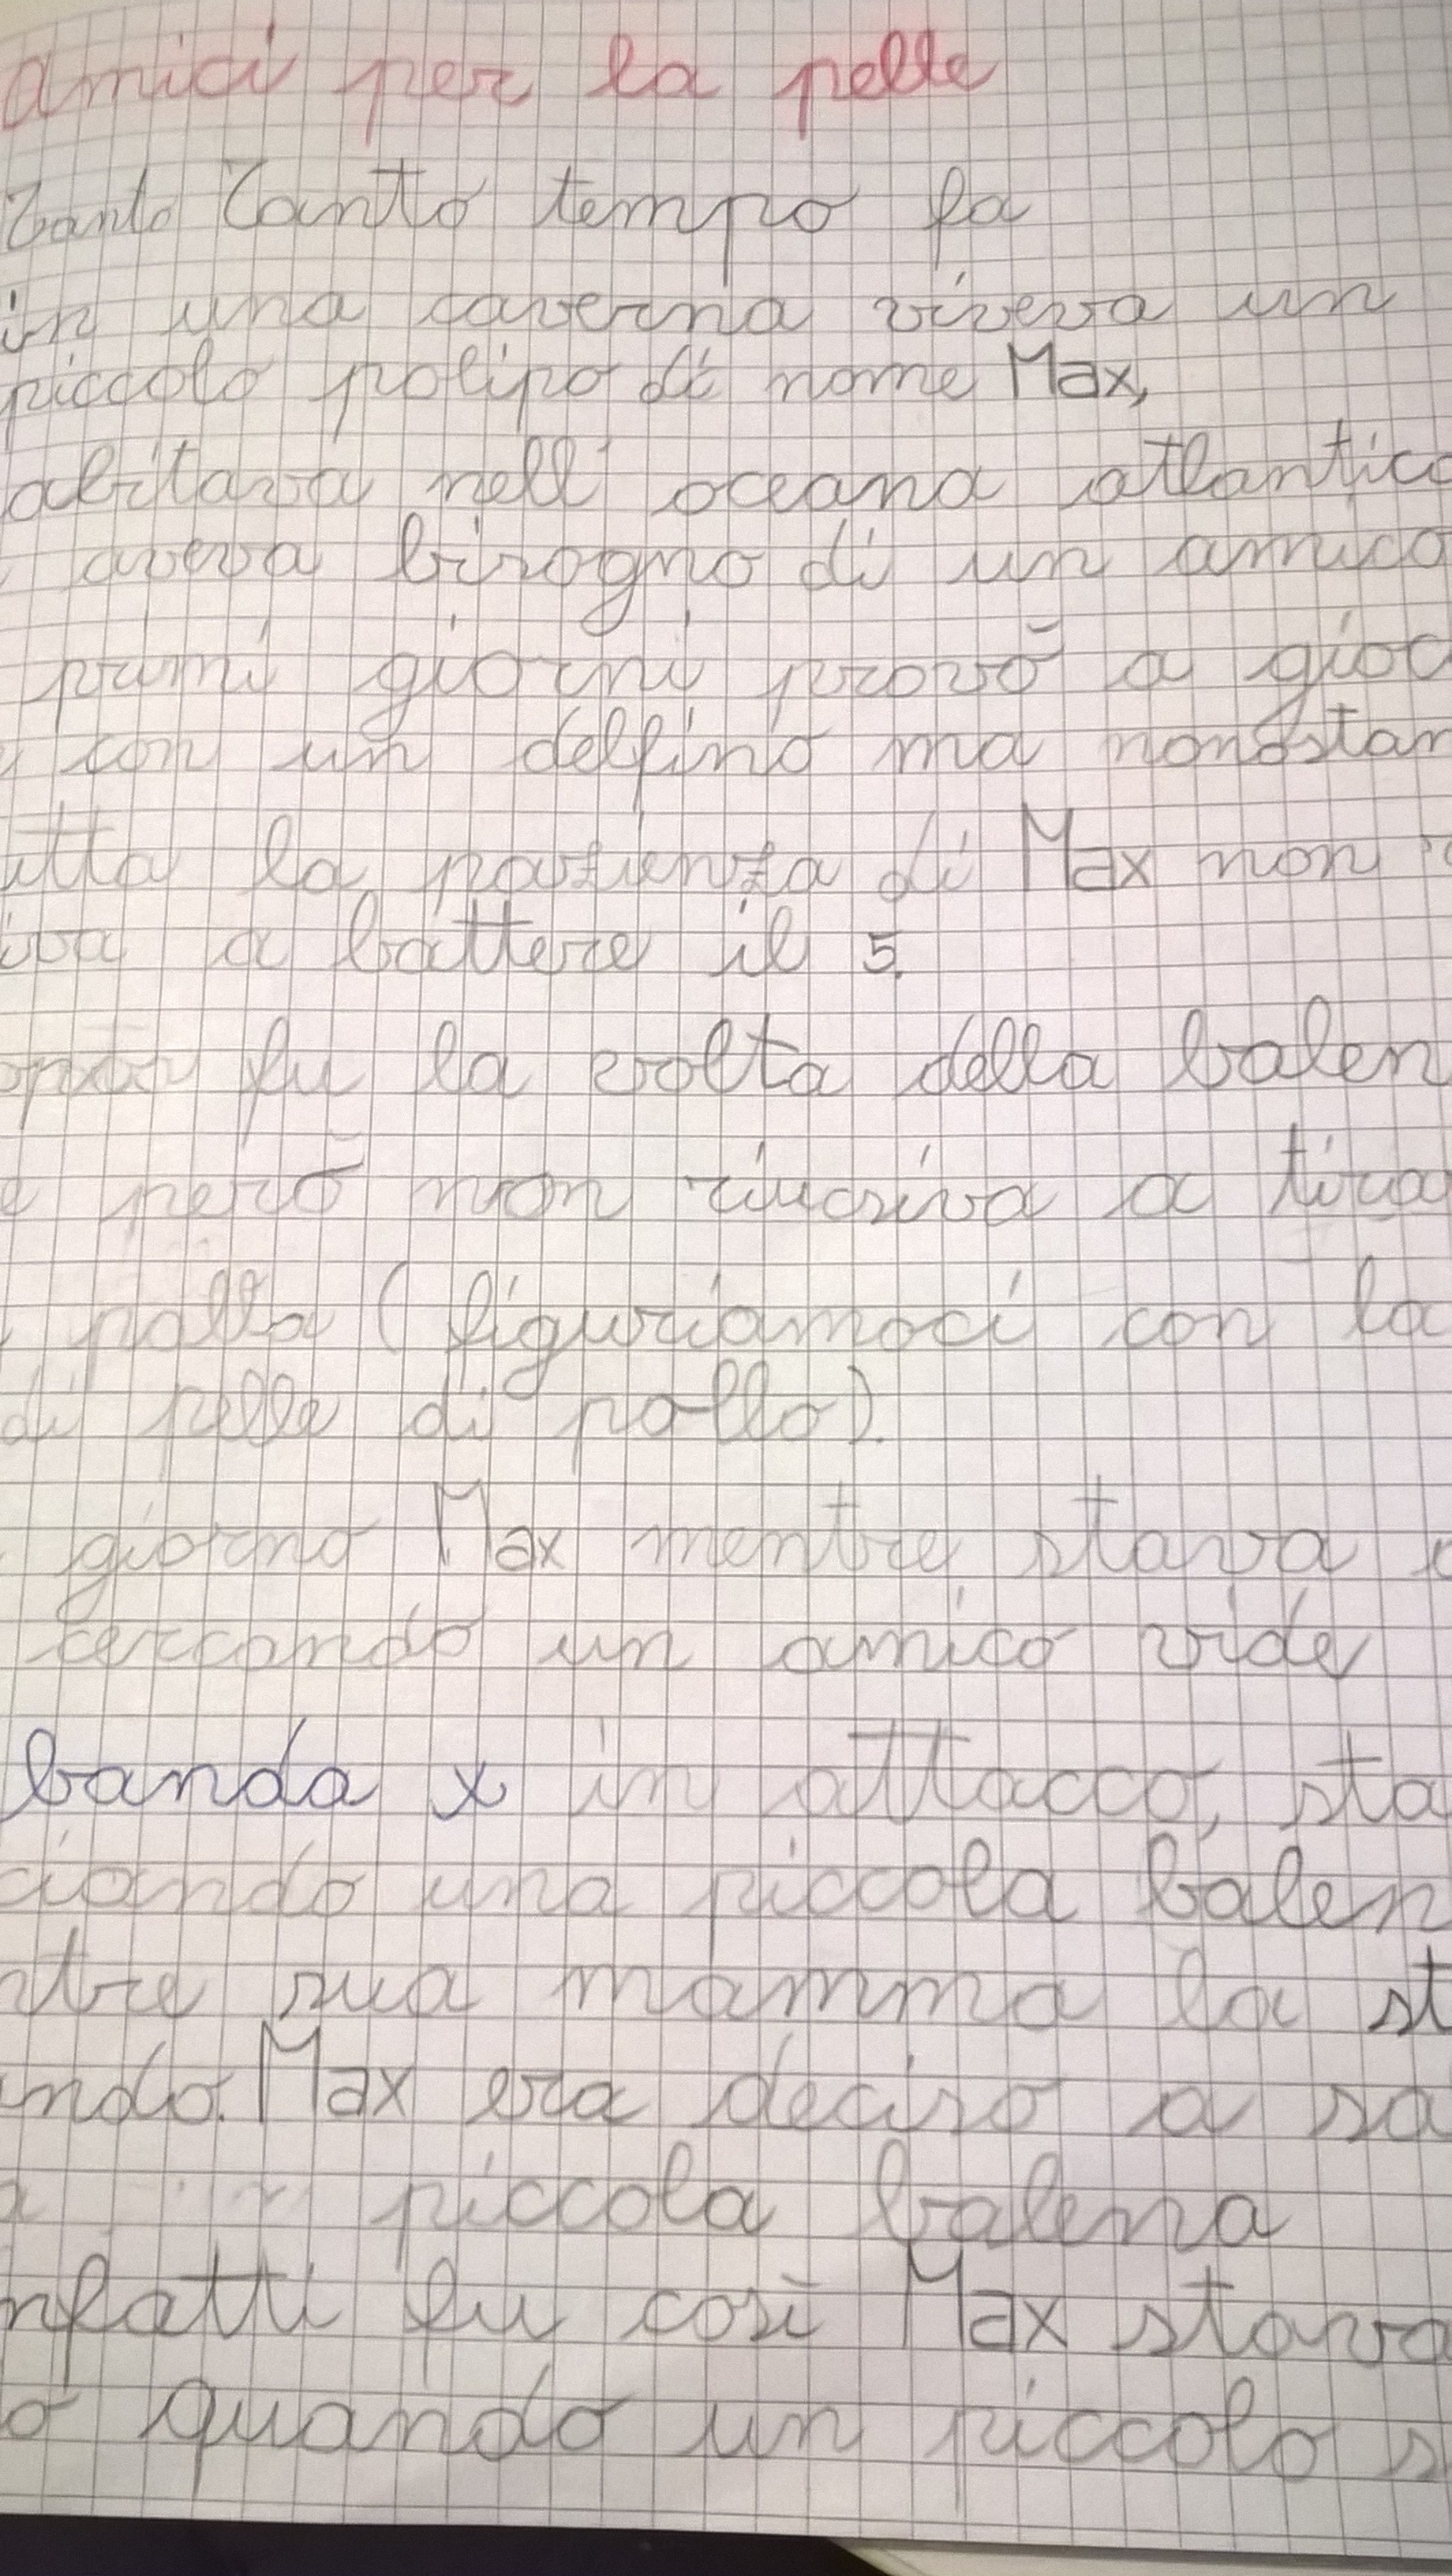 Amici per la pelle
Tanto Tanto tempo fa
in una caverna viveva un
piccolo polipo di nome Max,
abitava nell' oceano atlantico
aveva bisogno di un amico
primi giorni provò a gioc
con un delfino ma nonostan
utta la pazienza di Max non
iva a battere il 5.
fu la volta della balen
e però non riusciva a tira
palla (figuriamoci con la
di pelle di pollo).
giorno Max mentre stava
cercando un amico vide
banda x in attacco, sta
ciando una piccola balen
ntre sua mamma la st
ndo. Max era deciso a sa
a piccola balena
nfatti fu così Max stava
o quando un piccolo s